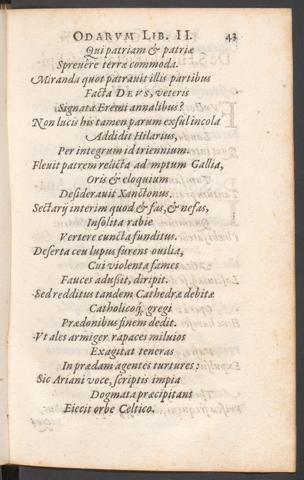 ODARVM LIB. II. 43
Qui patriam & patriæ
Spreuere terræ commoda.
Miranda quot patrauit illis partibus
Facta DEVS, veteris
Signata Eremi annalibus?
Non lucis his tamen parum exsul incola
Addidit Hilarius,
Per integrum id triennium.
Fleuit patrem relicta ademptum Gallia,
Oris & eloquium
Desiderauit Xanctonus.
Sectarij interim quod & fas, & nefas,
Insolita rabie
Vertere cuncta funditus.
Deserta ceu lupus furens ouilia,
Cui violenta fames
Fauces adussit, diripit.
Sed redditus tandem Cathedræ debitæ
Catholicoq́; gregi
Prædonibus finem dedit.
Vt ales armiger rapaces miluios
Exagitat teneras
In prædam agentes turtures:
Sic Ariani voce, scriptis impia
Dogmata præcipitans
Eiecit orbe Celtico.